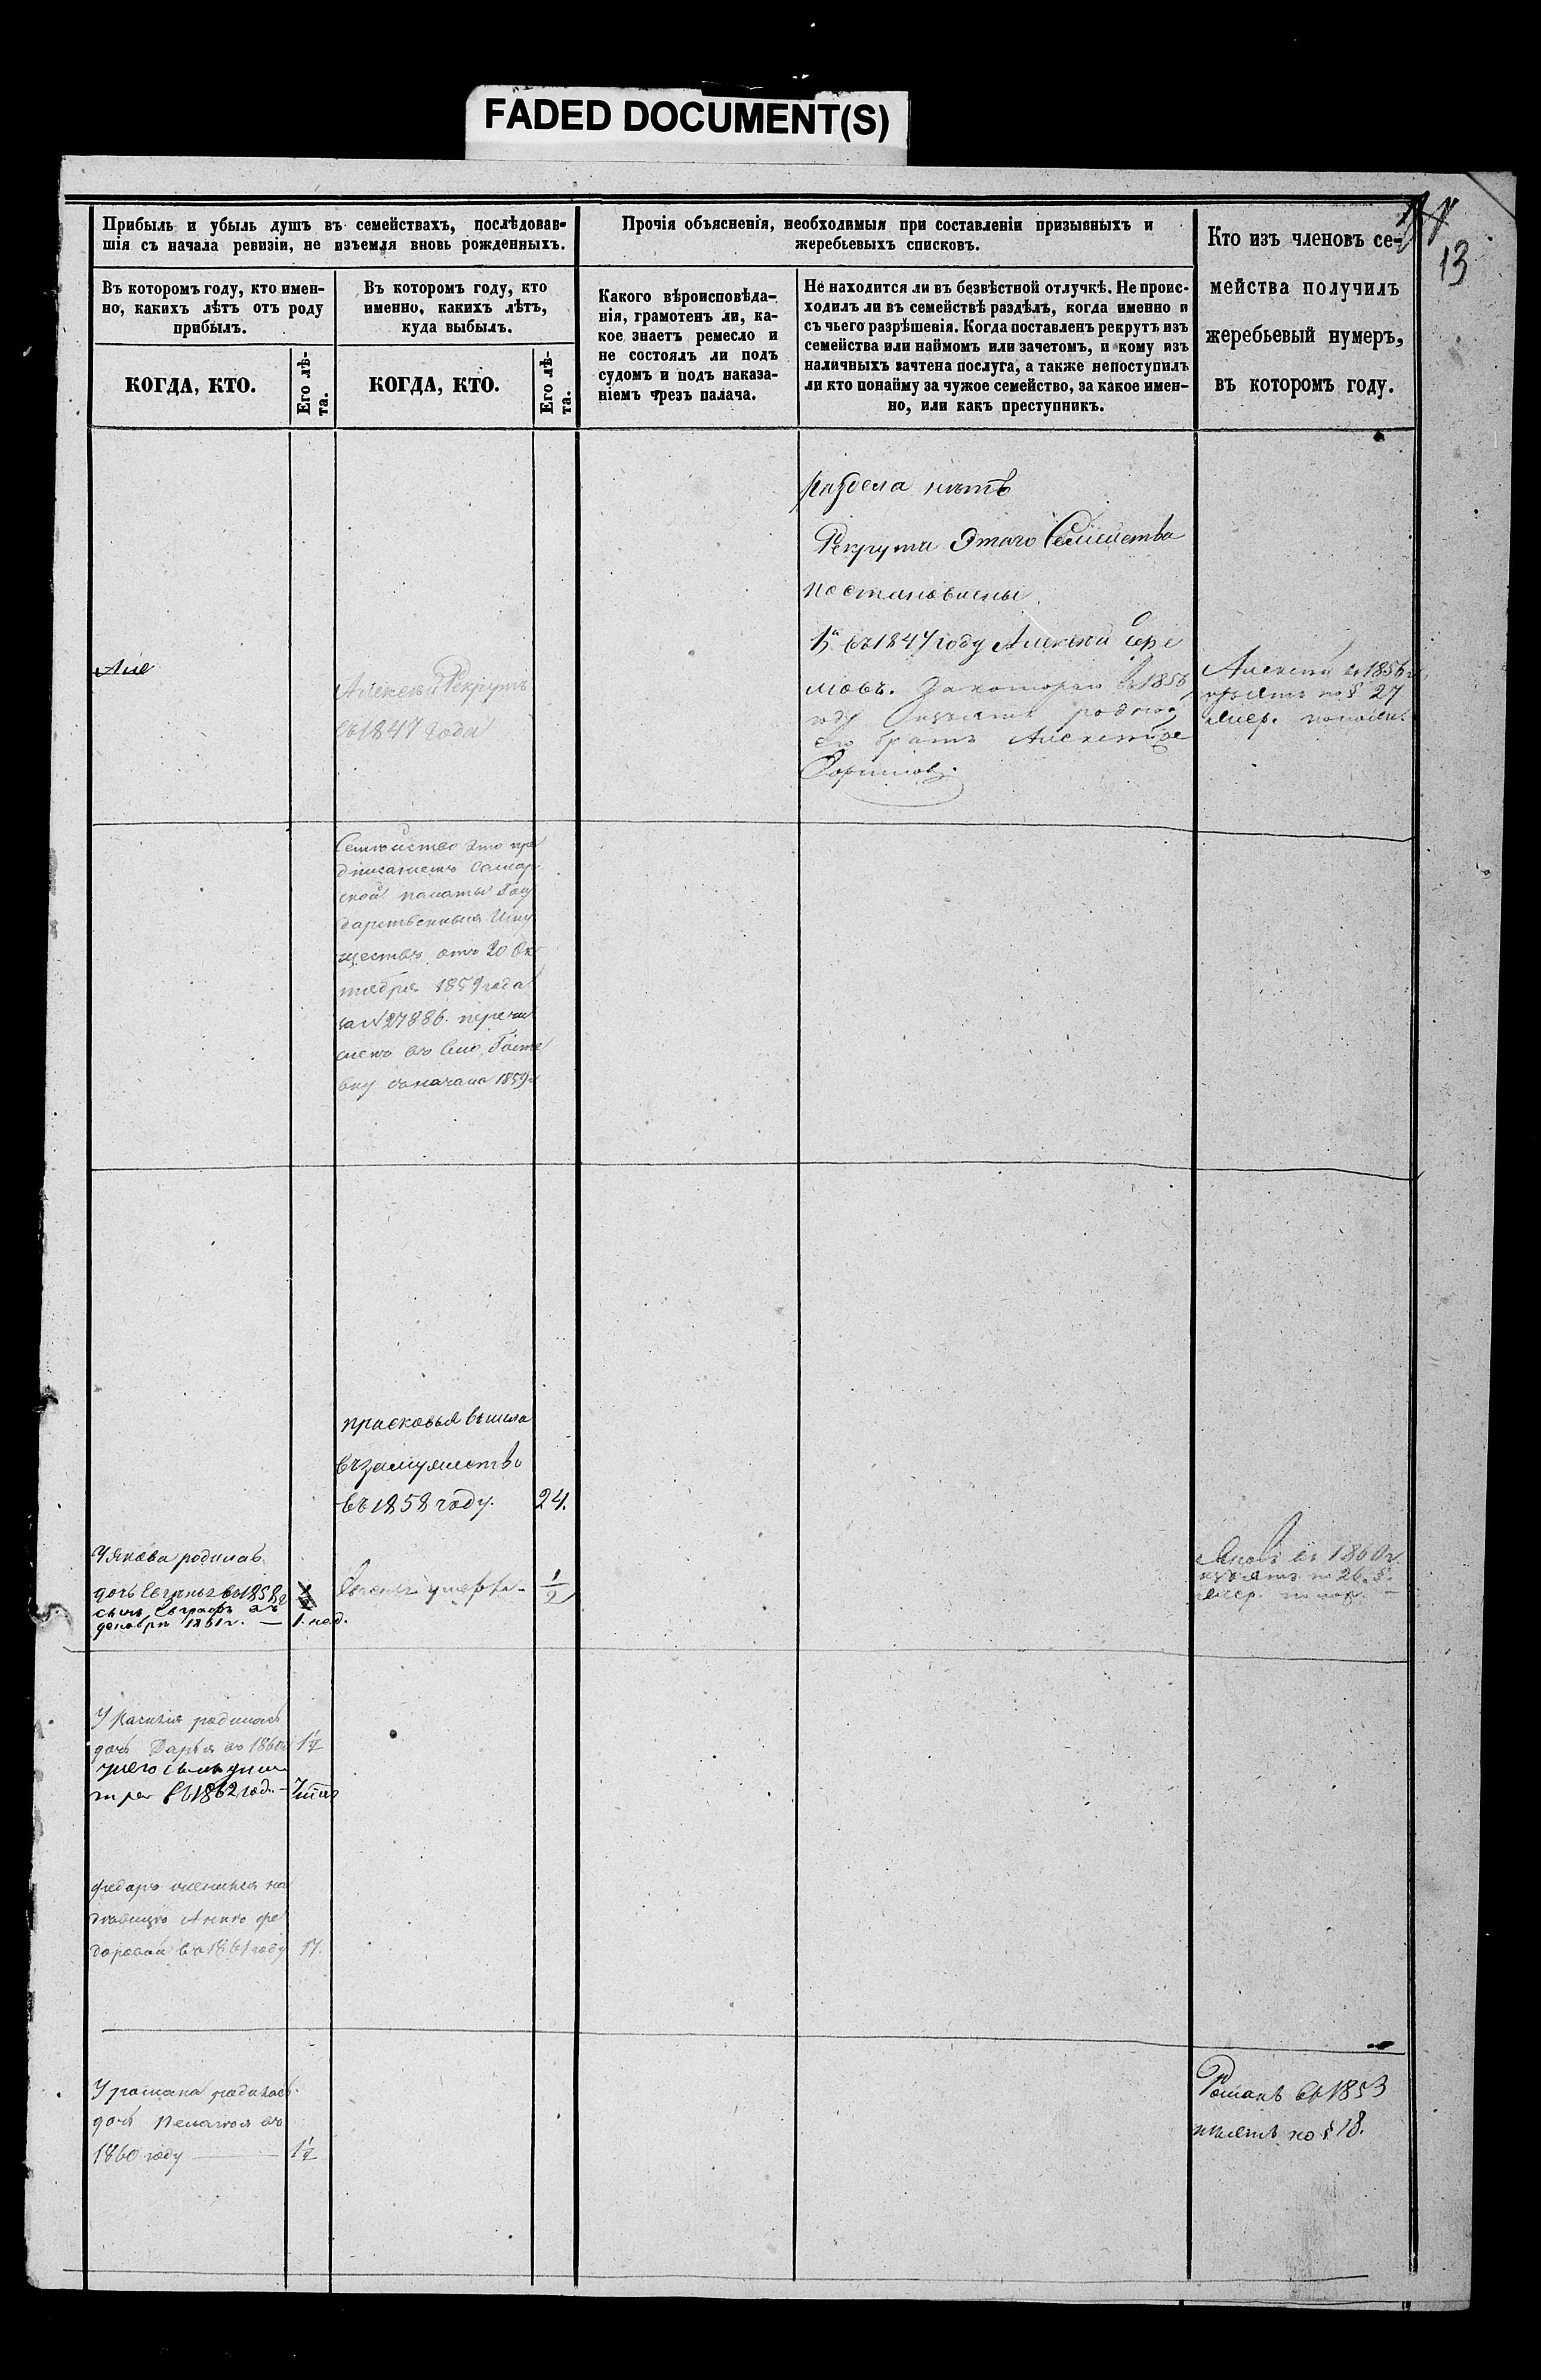 FADED DOCUMENT(S)
13
Прибыль и убыль душъ въ семействахъ, послѣдовав-
шія съ начала ревизіи, не изъемля вновь рожденныхъ.
Прочія объясненія, необходимыя при составленіи призывныхъ и
жеребьевыхъ списковъ.
Кто изъ членовъ се-
мейства получилъ
жеребьевый нумеръ,
въ которомъ году.
Въ которомъ году, кто имен-
но, какихъ лѣтъ отъ роду
прибылъ.
Въ которомъ году, кто
именно, какихъ лѣтъ,
куда выбылъ.
Какого вѣроисповѣда-
нія, грамотенъ ли, ка-
кое знаетъ ремесло и
не состоялъ ли подъ
судомъ и подъ наказа-
ніемъ чрезъ палача.
Не находится ли въ безвѣстной отлучкѣ. Не проис-
ходилъ ли въ семействѣ раздѣлъ, когда именно и
съ чьего разрѣшенія. Когда поставленъ рекрутъ изъ
семейства или наймомъ или зачетомъ, и кому изъ
наличныхъ зачтена послуга, а также непоступилъ
ли кто понайму за чужое семейство, за какое имен-
но, или какъ преступникъ.
КОГДА, КТО.
Его лѣ-
та.
КОГДА, КТО.
Его лѣ-
та.
раздела нѣтъ
Рекрута Этаго Семейства
въ 1847 году Алексей
мовъ. За котораго въ 1856
году изъятъ родной
его братъ Алексей
Алексей въ 1856
изъятъ по § 27
Але
Алексей Рекрутъ
въ 1847 года
Семейство это пре
дписаниемъ Самар
ской палаты Госу
дарственныхъ Иму
ществъ отъ 20 Ок
тября 1859 года
за № 27886. перечи
слено въ
вку сначала 1859
прасковья вышла
взамужество
въ 1858 году. 24.
У Якова родилась
дочь Евгенья въ 1858
сынъ Евграфъ въ
декабрѣ 1861 г. — 1. нед.
Евгенья умерла - 1/2
Яковъ въ 1860 г.
изъятъ по 26. §.
У Василия родилась
дочь Дарья въ 1860 1 1/2
у него сынъ
въ 1862 год.
федоръ женился на
девицѣ Аннѣ фе
доровой въ 1861 году 17.
У романа родилась
дочь Пелагея въ
1860 году — 1 1/2
Романъ въ 1853
изъятъ по § 18.